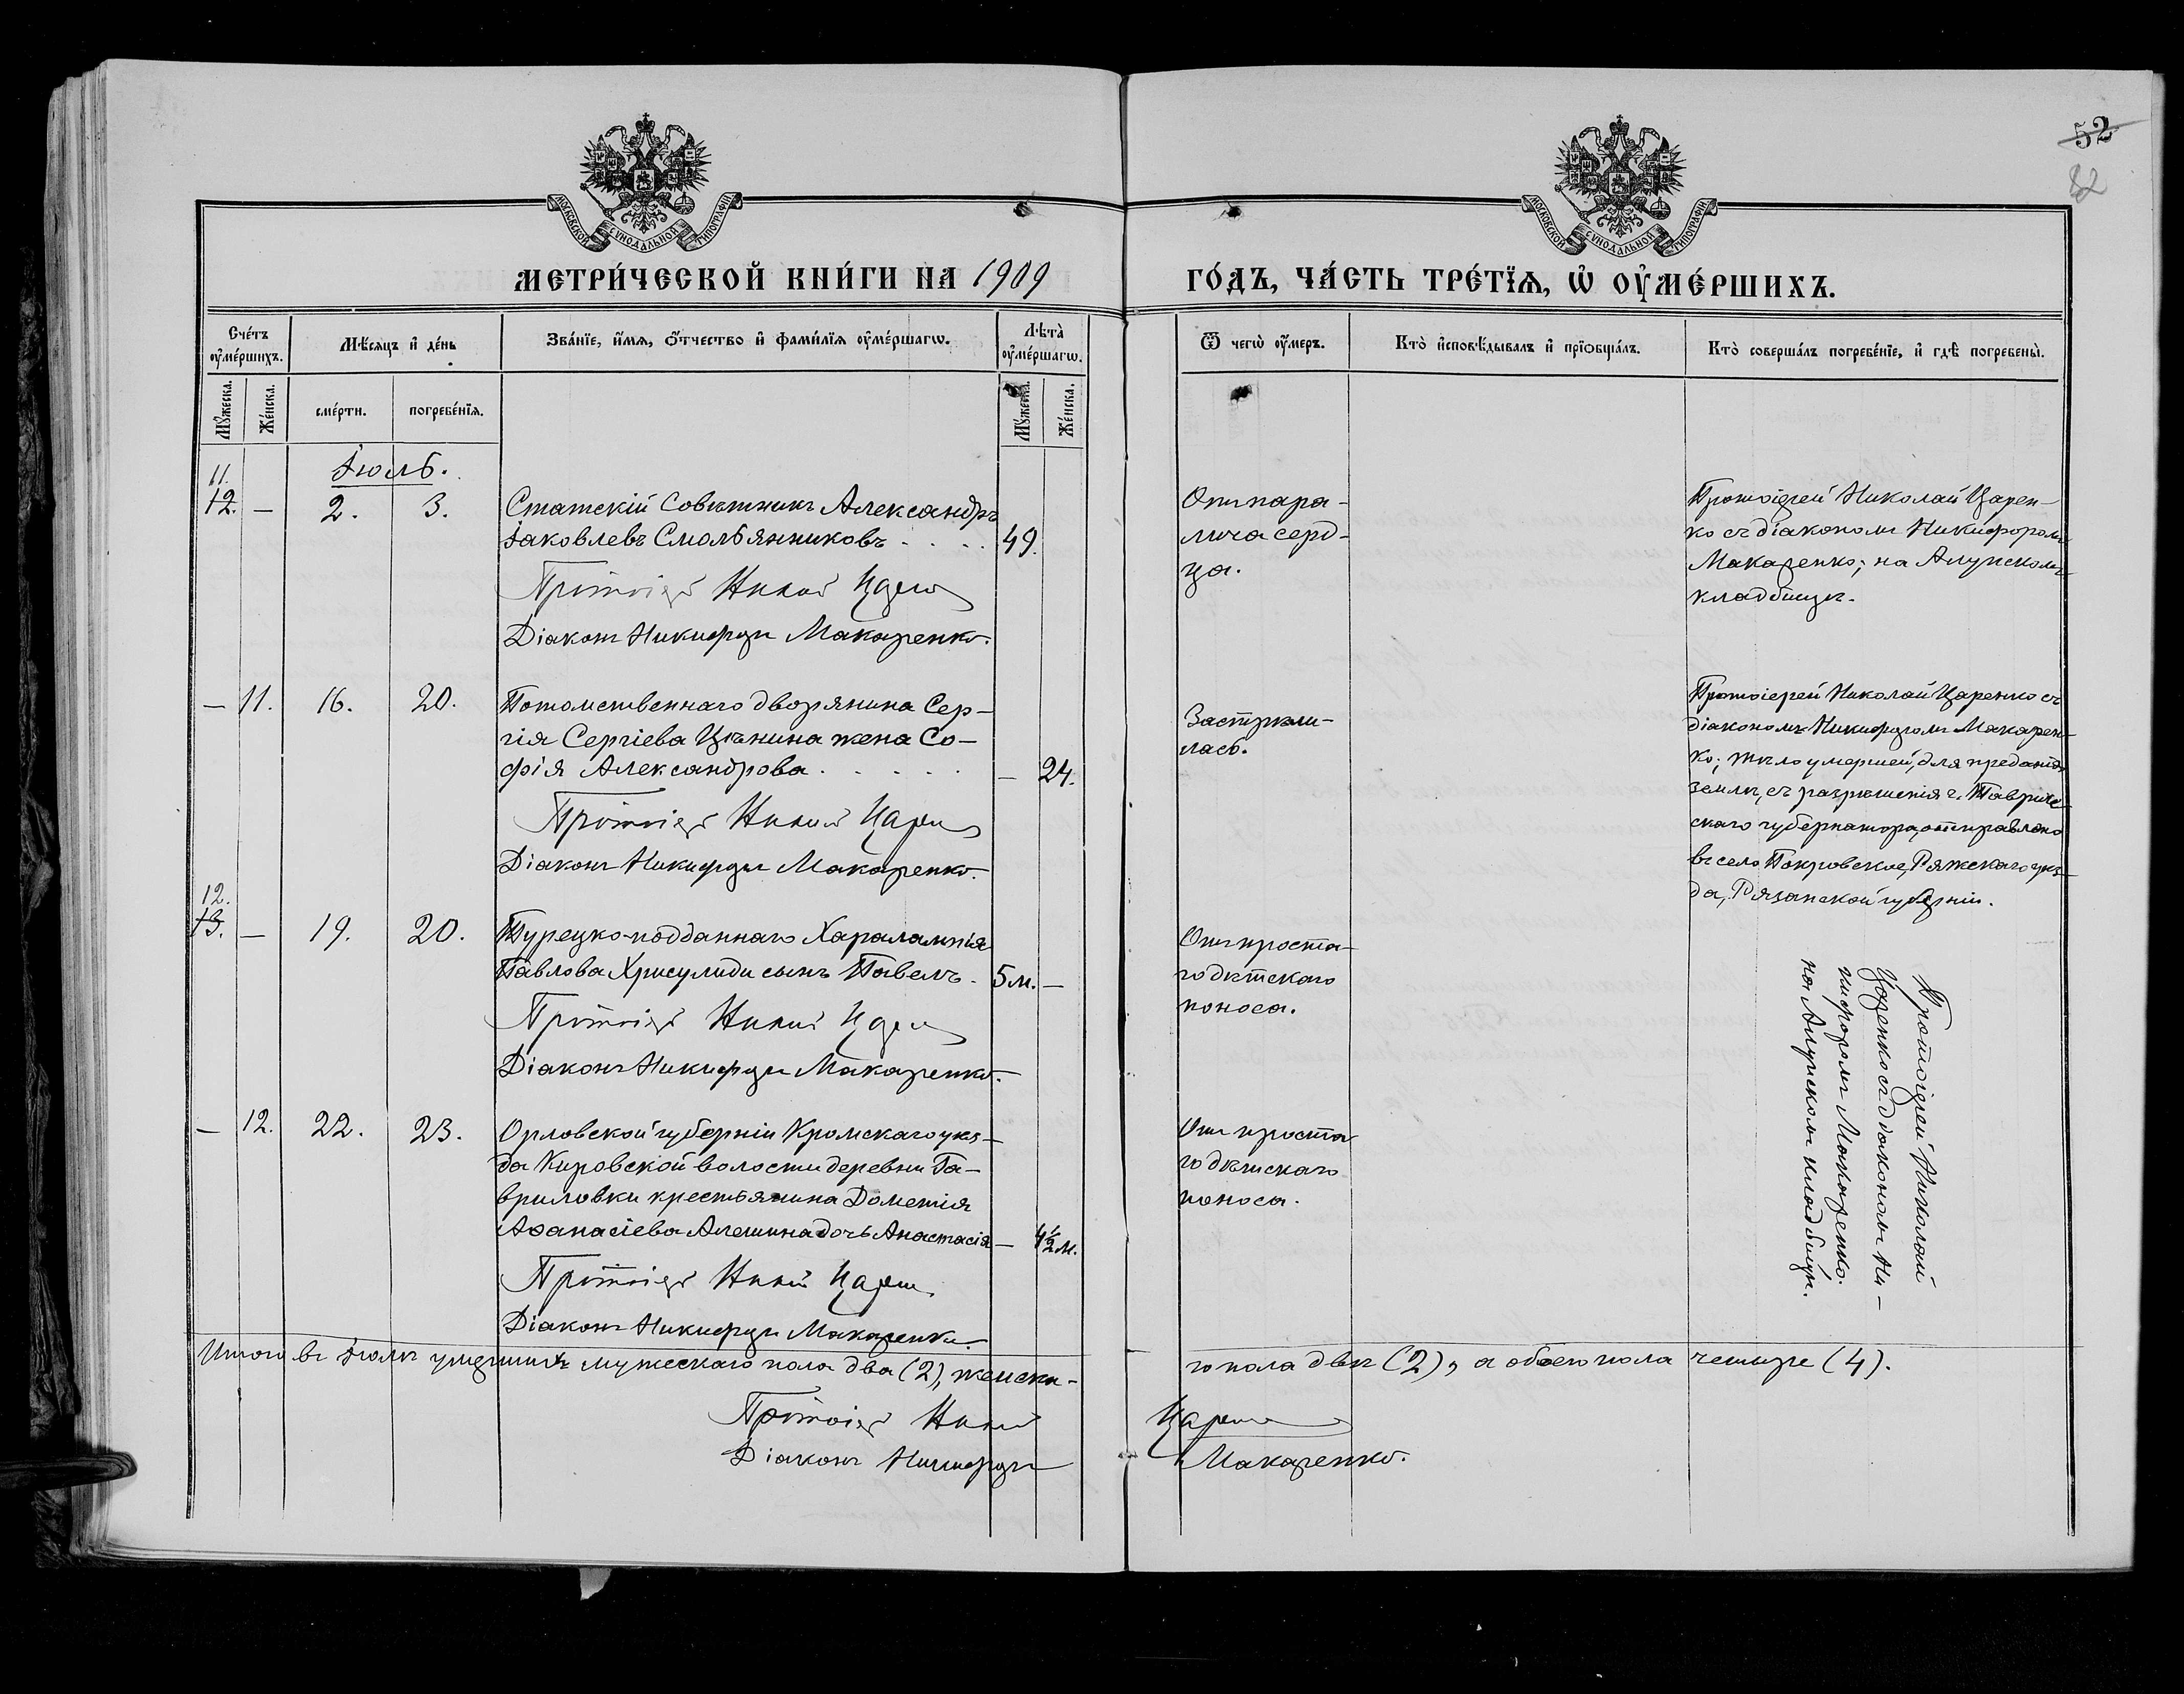 52
82
МОСКОВСКОЙ СѴНОДАЛЬНОЙ ТИПОГРАФІИ
МОСКОВСКОЙ СѴНОДАЛЬНОЙ ТИПОГРАФІИ
МЕТРИ́ЧЕСКОЙ КНИ́ГИ НА 1909 ГО́ДЪ, ЧА́СТЬ ТРЕ́ТЇѦ, Ѡ҆ ОУ҆МЕ́РШИХЪ.
Сче́тъ оу҆ме́ршихъ.
Мѣ́сяцъ и҆ де́нь
Зва́нїе, и҆́мѧ, ѻ҆́тчество и҆ фами́лїѧ оу҆ме́ршагѡ.
Лѣта̀ оу҆ме́ршагѡ.
Ѿ чегѡ̀ оу҆́меръ.
Кто̀ и҆сповѣ́дывалъ и҆ прїѻбща́лъ.
Кто̀ соверша́лъ погребе́нїе, и҆ гдѣ̀ погребены̀.
Мꙋ́жеска. Же́нска. сме́рти. погребе́нїѧ. Мꙋ́жеска. Же́нска.
Іюль.
11.
12. — 2. 3. Статскій Совѣтникъ Александръ
Іаковлевъ Смольянниковъ . . . . 49.
Протоіерей Николай Царенко
Діаконъ Никифоръ Макаренко.
Отъ пара-
лича серд-
ца.
Протоіерей Николай Царен-
ко съ діакономъ Никифоромъ
Макаренко; на Алупскомъ
кладбищѣ.
— 11. 16. 20. Потомственнаго дворянина Сер-
гія Сергіева Цѣнина жена Со-
фія Александрова . . . . . — 24.
Протоіерей Николай Царенко
Діаконъ Никифоръ Макаренко.
Застрѣли-
лась.
Протоіерей Николай Царенко съ
діакономъ Никифоромъ Макарен-
ко; тѣло умершей, для преданія
землѣ, съ разрѣшенія г. Тавриче-
скаго губернатора, отправлено
въ село Покровское, Ряжскаго уѣз-
да, Рязанской губерніи.
12.
13. — 19. 20. Турецко-подданнаго Харалампія
Павлова Хрисулиди сынъ Павелъ. 5 м. —
Протоіерей Николай Царенко
Діаконъ Никифоръ Макаренко.
Отъ проста-
го дѣтскаго
поноса.
Протоіерей Николай
Царенко съ діакономъ Ни-
кифоромъ Макаренко.
на Алупскомъ кладбищѣ.
— 12. 22. 23. Орловской губерніи Кромскаго уѣз-
да Кировской волости деревни Га-
вриловки крестьянина Дометія
Аѳанасіева Алешина дочь Анастасія — 4½ м.
Протоіерей Николай Царенко
Діаконъ Никифоръ Макаренко.
Отъ проста-
го дѣтскаго
поноса.
Итого въ Іюлѣ умершихъ мужескаго пола два (2), женска-
го пола двѣ (2), а обоего пола четыре (4).
Протоіерей Николай Царенко
Діаконъ Никифоръ Макаренко.